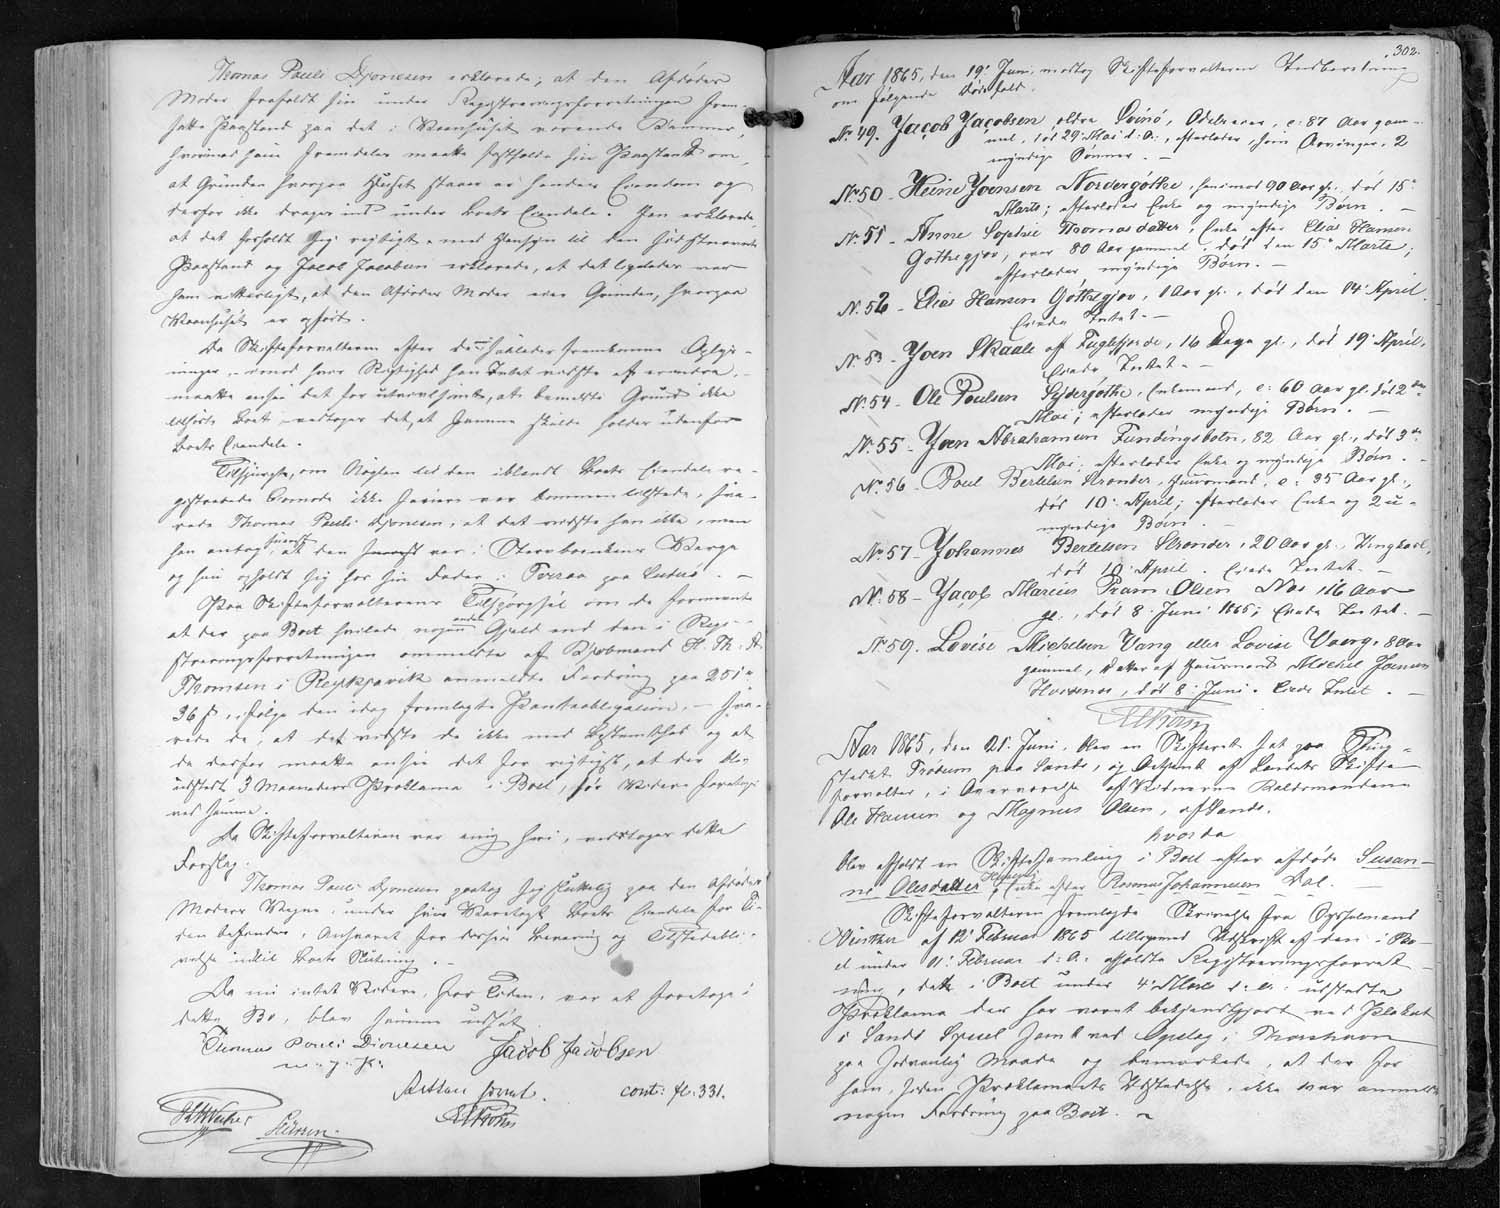 Thomas Pauli Djonesen erklærede, at den Afdødes
Moder forholdt sin under Registreringsforretningen frem-
satte Paastand paa det i Vaanhuset værende Kammer,
hvorimod hun fremdeles maatte fastholde sin Paastand om,
at Grunden hvorpaa Huset staaer er hendes Eiendom og
derfor ikke drages ind under Boets Eiendele. Han erklærede
at det forholdt sig rigtigt med Hensyn til den sidstnævnte
Paastand og Jacob Jacobsen erklærede, at det ligeledes var
ham vitterligt, at den Afdødes Moder eier Grunden, hvorpaa
Vaanhuset er opført.
Da Skifteforvalteren efter de saaledes fremkomne Oplys-
ninger, imod hvis Rigtighed han Intet vidste at erindre,
maatte ansee det for utvivlsomt, at bemeldte Grund ikke
tilhørte Boet, vedtoges det, at samme skulde holdes udenfor
Boets Eiendele.
Tilspurgte, om Nøglen til den iblandt Boets Eiendele re-
gistrerede Comode ikke senere var kommen tilstede, sva-
rede Thomas Pauli Djonesen, at det vidste han ikke, men
han antog, at den snarest var i Steenbrinkens Værge
og hun opholdt sig hos sin Fader i Tveraa paa Suderø. –
Paa Skifteforvalterens Tilspørgsel om de formeente
at der paa Boet hvilede nogen anden Gjæld end den i Regi-
streringsforretningen ommeldte af Kjøbmand H. Th. A.
Thomsen i Reykjavik anmeldte Fordring paa 251 rd
36 ß, ifølge den idag fremlagte Panteobligation, – sva-
rede de, at det vidste de ikke med Bestemthed og at
de derfor maatte ansee det for rigtigst, at der blev
udstedt 3 Maaneders Proklama i Boet, før Videre foretoges
ved samme.
Da Skifteforvalteren var enig heri, vedtoges dette
Forslag.
Thomas Pauli Djonesen paatog sig skriftlig paa den Afdødes
Moders Vegne, under hvis Varetægt Boets Eiendele for Ti-
den befinder, Ansvaret for disses Bevaring og Tilstedebli-
velse indtil Boets Slutning. –
Da nu intet Videre, for Tiden, var at foretage i
dette Bo, blev samme udsat.
Thomas Pauli Dionesen Jacob Jacobsen
m. f. P.
Retten hævet. cont: fl. 331.
302.
Aar 1865, den 19' Juni, modtog Skifteforvalteren Indberetning
om følgende Dødsfald.
No 49. Jacob Jacobsen ældre Svinø, Odelseier, c: 87 Aar gam-
mel, død 29' Mai d: A:, efterlader, som Arvinger, 2
myndige Sønner. –
No 50 – Heine Joensen Nordergøthe, henimod 90 Aar gl., død 15'
Marts; efterlader Enke og myndige Børn. –
No 51 – Anne Sophie Thomasdatter, Enke efter Elias Hansen
Gøthegjov, over 80 Aar gammel, død den 15' Marts;
efterlader myndige Børn. –
No 52 – Elias Hansen Gøthegjov, 1 Aar gl., død den 14' April.
Eiede Intet. –
No 53 – Joen Skaale af Fuglefjorde, 16 Dage gl., død 19' April,
Eiede Intet. –
No 54 – Ole Poulsen Sydergøthe, Enkemand, c: 60 Aar gl. død 2den
Mai; efterlader myndige Børn. –
No 55 – Joen Abrahamsen Fundingsbotn, 82 Aar gl., død 3die
Mai; efterlader Enke og myndige Børn. –
No 56 – Poul Bertelsen Strender, Huusmand, c: 35 Aar gl.,
død 10' April; efterlader Enke og 2 u-
myndige Børn. –
No 57 – Johannes Bertelsen Strender, 20 Aar gl., Ungkarl,
død 10' April. Eiede Intet. –
No 58 – Jacob Marius Pram Olsen Næs, 16 Aar
gl., død 8' Juni 1865; Eiede Intet. –
No 59. Lovise Michelsen Vang eller Lovise Vaerg, 8 Aar
gammel, Datter af Huusmand Michel Joensen
Hvidenæs, død 8' Juni. Eiede Intet. –
Aar 1865, den 21' Juni, blev en Skifteret sat paa Ting-
stedet Trødum paa Sandø, og betjent af Landets Skifte-
forvalter, i Overværelse af Vidnerne Kaldsmændene
Ole Hansen og Magnus Olsen, af Sande.
hvorda
blev afholdt en Skiftesamling i Boet efter afdøde Susan-
ne Olesdatter, Enke efter Rasmus Johannesen Dal. –
Skifteforvalteren fremlagde Skrivelse fra Sysselmand
Winther af 12' Februar 1865 tilligemed Udskrift af den i Bo-
et under 11' Februar d: A: afholdte Registreringsforret-
ning, dette i Boet under 4' Marts d: A: udstedte
Proklama der har været bekjendtgjort ved Placat
i Sandø Syssel samt ved Opslag i Thorshavn
paa sædvanlig Maade og bemærkede, at der for
ham, siden Proklamaets Udstedelse, ikke var anmeldt
nogen Fordring paa Boet. ~